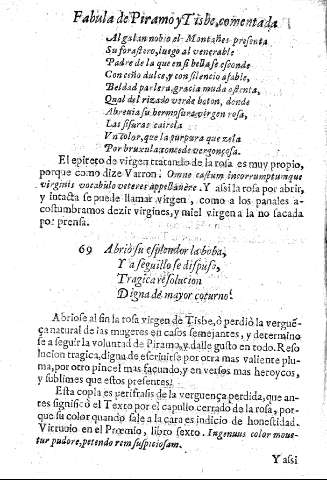 Fabula de Piramo y Tisbe, comentada
Al galan nobio el Montañes presenta
Su forastero, luego al venerable
Padre de la que en si bella se esconde
Con ceño dulce, y con silencio afable,
Beldad parlera, gracia muda ostenta,
Qual del rizado verde boton, donde
Abreuia su hermosura virgen rosa,
Las sisuras cairela
Vn color, que la purpura que zela
Por bruxula concede vergonçosa.
El epiteto de virgen tratando de la rosa es muy propio,
porque como dize Varron. Omne castum incorrumptumque
virginis vocabulo veteres appellauere. Y assi la rosa por abrir,
y intacta se puede llamar virgen, como a los panales a-
costumbramos dezir virgines, y miel virgen a la no sacada
por prensa.
69 Abrio su esplendor la boba,
Y a seguillo se dispuso,
Tragica resolucion
Digna de mayor coturno.
Abriose al fin la rosa virgen de Tisbe, ò perdiò la verguē-
ça natural de las mugeres en casos semejantes, y determino
se a seguir la voluntad de Piramo, y dalle gusto en todo. Reso
lucion tragica, digna de escriuirse por otra mas valiente plu-
ma, por otro pincel mas facundo, y en versos mas heroycos,
y sublimes que estos presentes.
Esta copla es perifrasis de la verguença perdida, que an-
tes significò el Texto por el capullo cerrado de la rosa, por-
que su color quando sale a la cara es indicio de honestidad.
Vitruuio en el Proœmio, libro sexto. Ingenuus color moue-
tur pudore, petendo rem suspiciosam.
Y assi